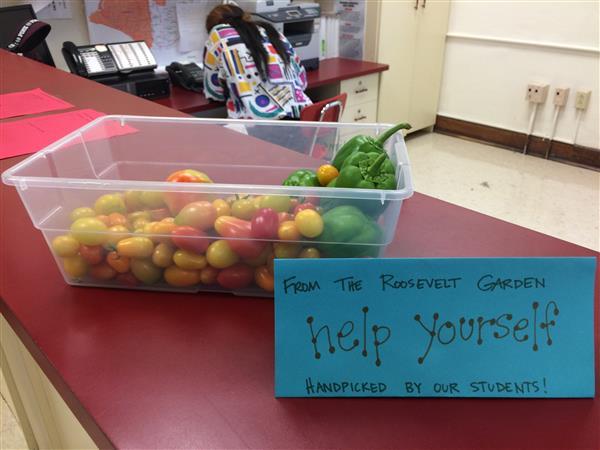 From The Roosevelt Garden
help yourself
Handpicked by our students!